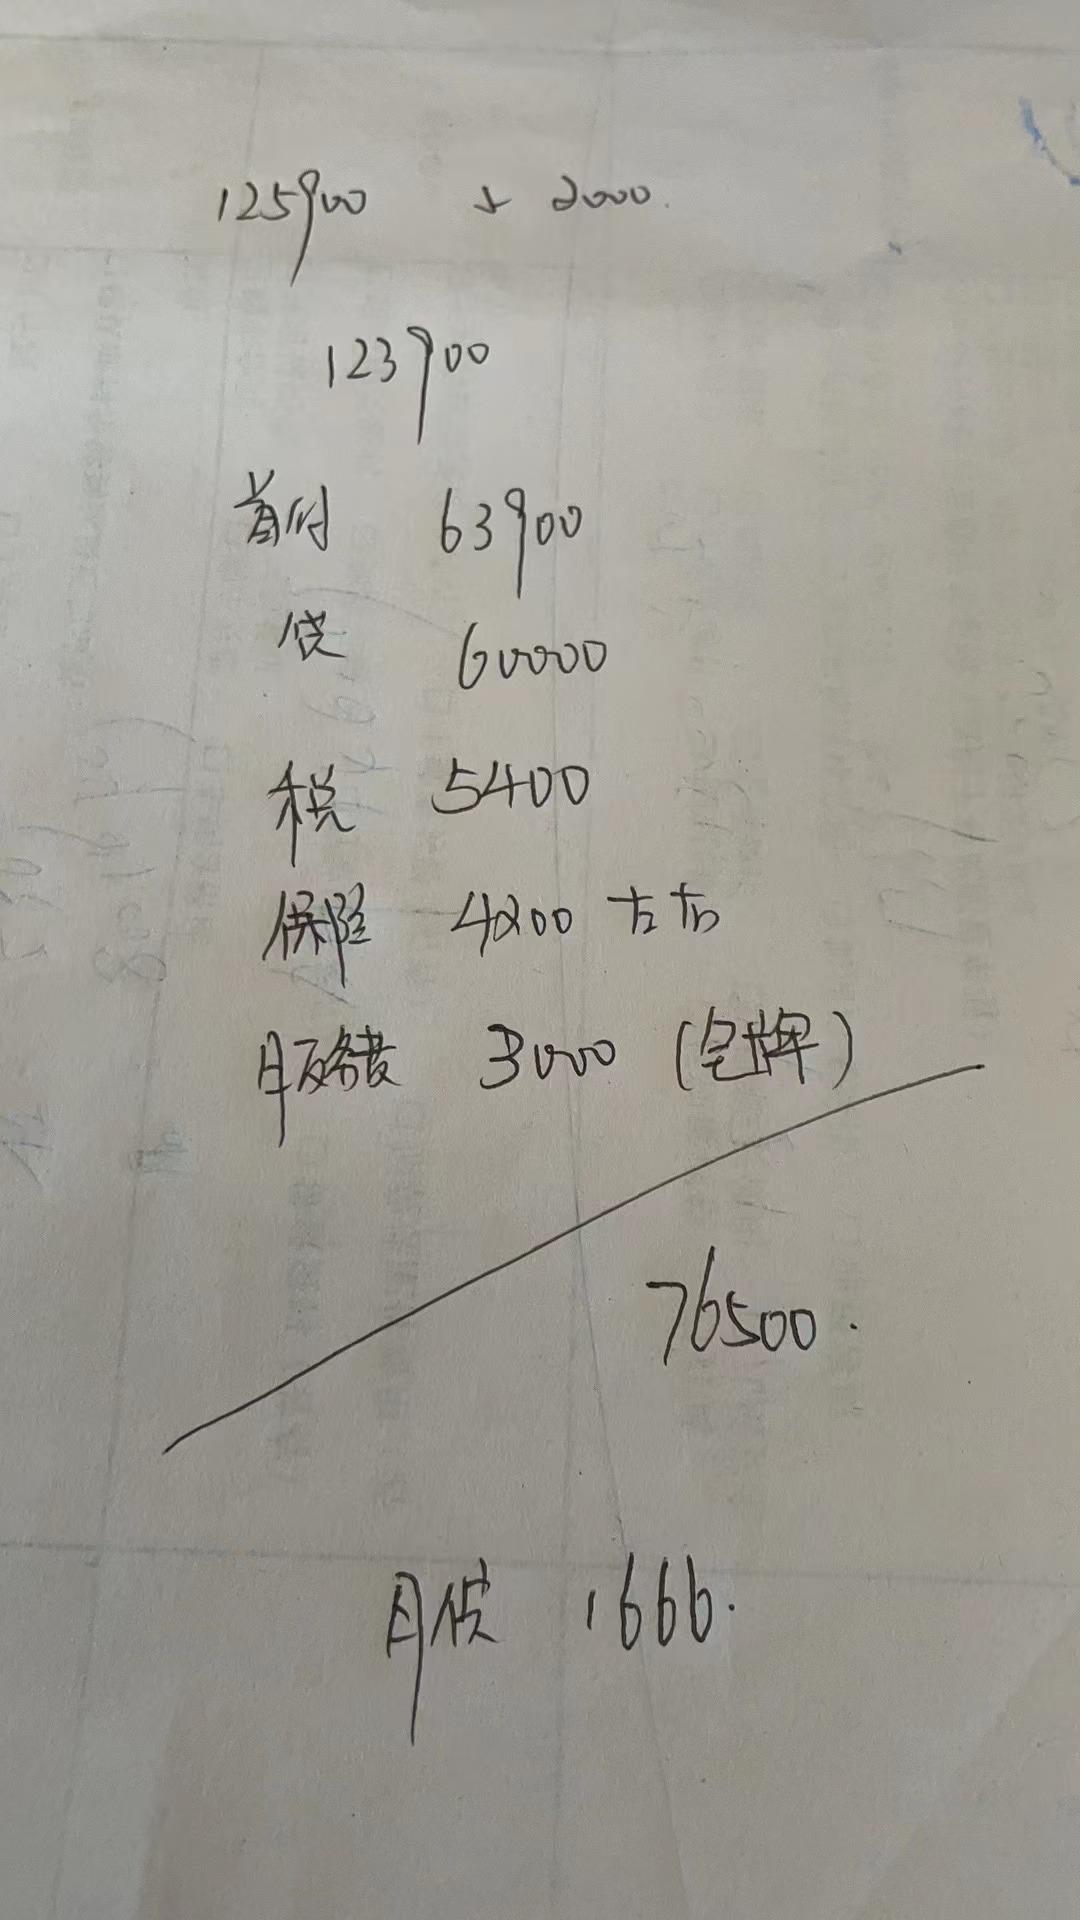 125900 ↓ 2000.
123900
首付 63900
贷 60000
税 5400
保险 4200左右
服务费 3000 (包牌)
76500.
月贷 1666.